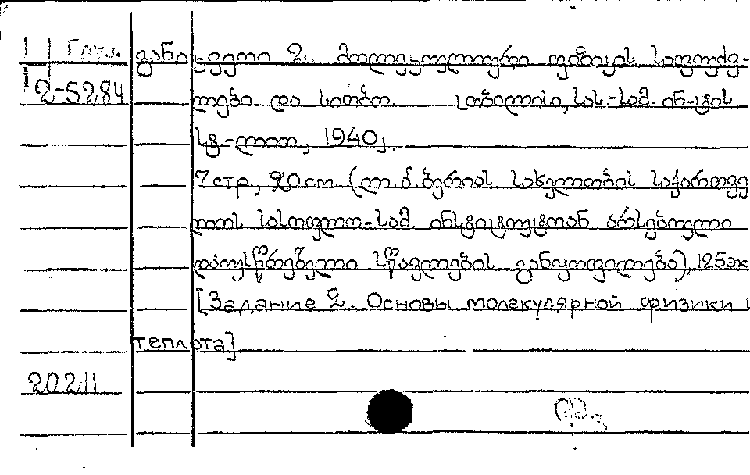 განკვეთი 2. მოლეკულური ფიზიკის საფუძვ-
2-5284 ლები და სითბო. თბილისი, სას.-სამ. ინ-ტის
სტ.-ლით, 1940,
7 стр, 20 cm (ლ. ბ. ბერიას სახელობის საქართვე
ლოს სასოფლო-სამ. ინსტიტუტთან არსებული
დაუსწრებელი სწავლების განყოფილება), 125 эк
[Задание 2. Основы молекулярной физики и
теплота]
20211